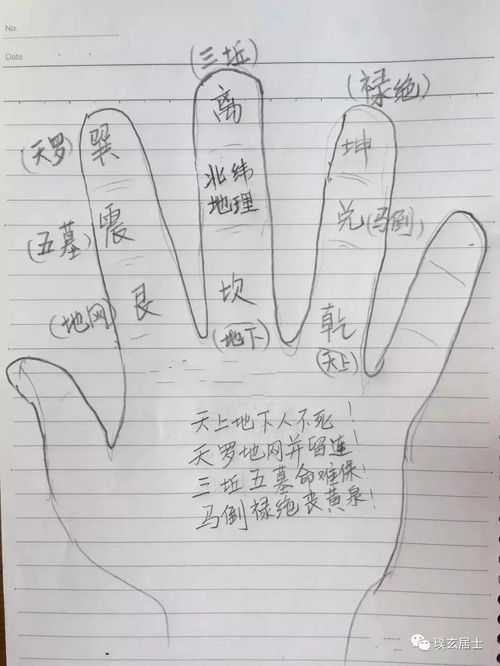 No.
Date
(三丘)
(禄绝)
离
(天罗)
巽
坤
北纬
地理
(五墓)
震
兑
(马倒)
(地网)
艮
坎
乾
(地下)
(天上)
天上地下人不死！
天罗地网并留连！
三丘五墓命难保！
马倒禄绝丧黄泉！
玞玄居士